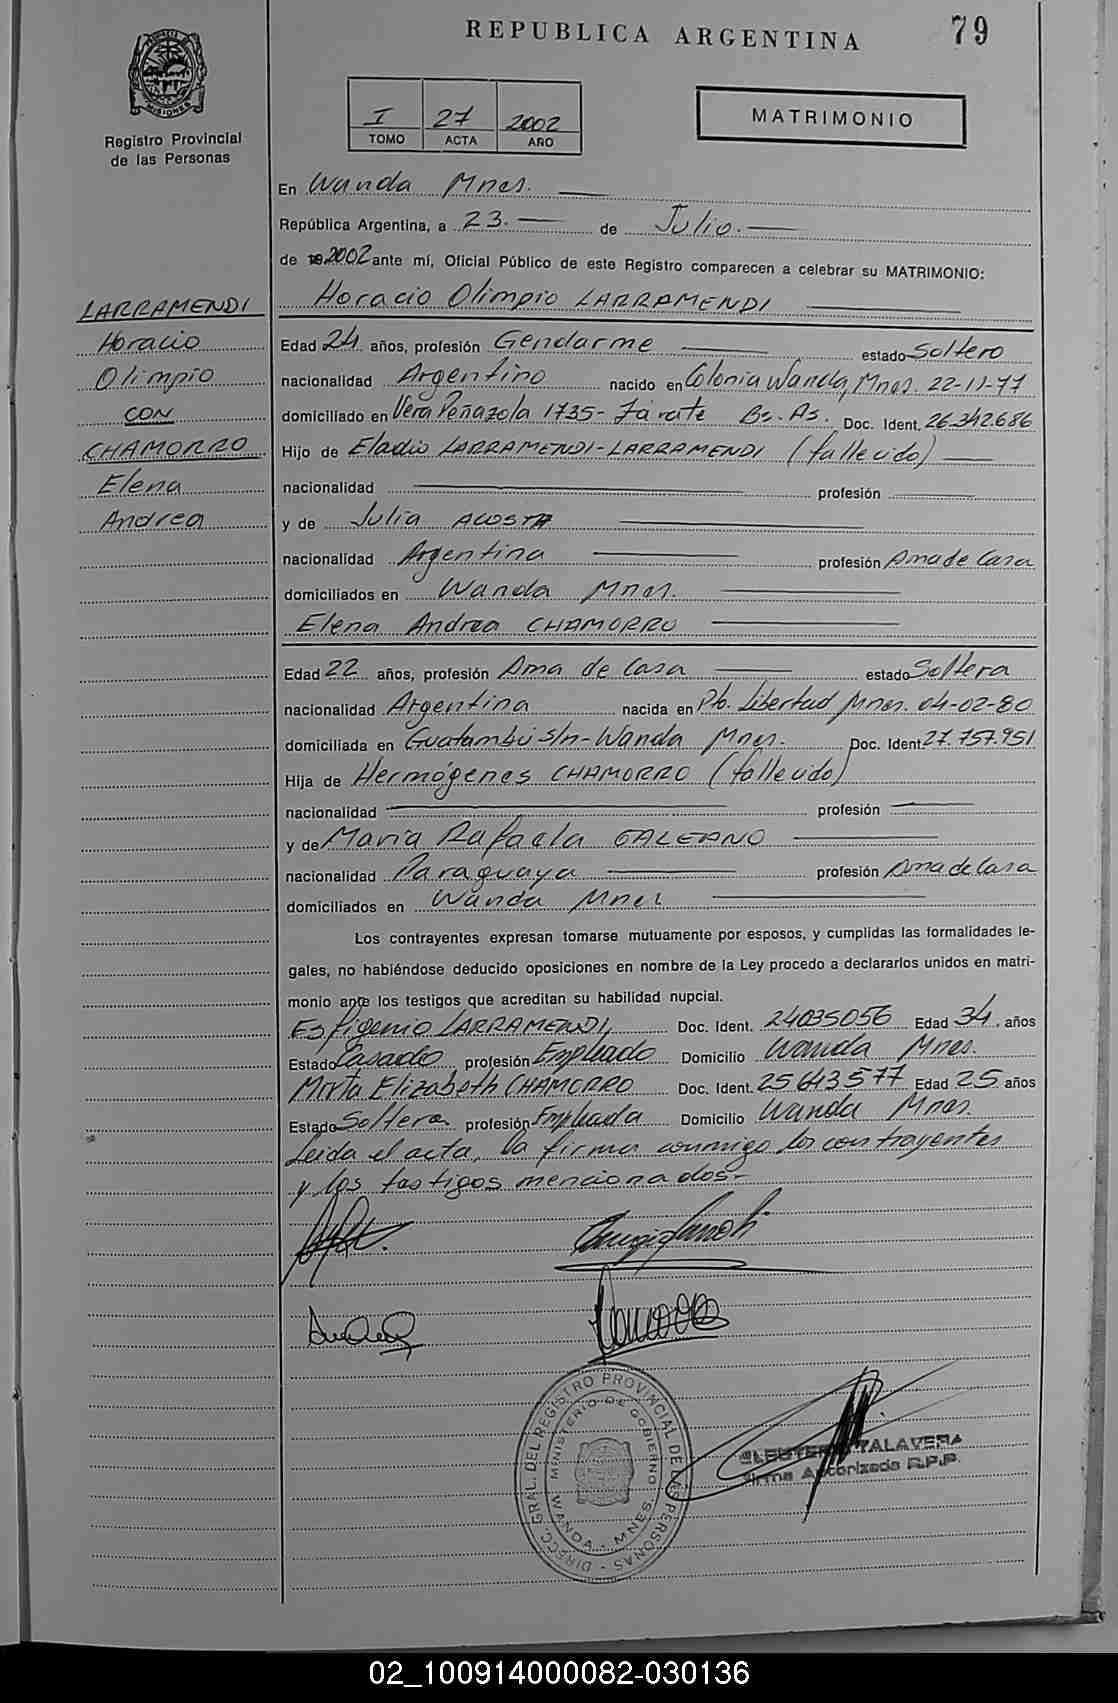 REPUBLICA ARGENTINA 79
MISIONES
Registro Provincial
de las Personas
I 27 2002
TOMO ACTA AÑO
MATRIMONIO
En Wanda Mnes.
República Argentina, a 23. de Julio.
de 2002 ante mí, Oficial Público de este Registro comparecen a celebrar su MATRIMONIO:
Horacio Olimpio LARRAMENDI
LARRAMENDI
Horacio
Olimpio
CON
CHAMORRO
Elena
Andrea
Edad 24 años, profesión Gendarme estado Soltero
nacionalidad Argentino nacido en Colonia Wanda, Mnes. 22-11-77
domiciliado en Vera Peñazola 1735- Zárate Bs. As. Doc. Ident. 26.342.686
Hijo de Eladio LARRAMENDI-LARRAMENDI (fallecido)
nacionalidad profesión
y de Julia ACOSTA
nacionalidad Argentina profesión Ama de Casa
domiciliados en Wanda Mnes.
Elena Andrea CHAMORRO
Edad 22 años, profesión Ama de Casa estado Soltera
nacionalidad Argentina nacida en Pto. Libertad Mnes. 04-02-80
domiciliada en Guatambú s/n-Wanda Mnes. Doc. Ident. 27.757.951
Hija de Hermógenes CHAMORRO (fallecido)
nacionalidad profesión
y de María Rafaela GALEANO
nacionalidad Paraguaya profesión Ama de Casa
domiciliados en Wanda Mnes
Los contrayentes expresan tomarse mutuamente por esposos, y cumplidas las formalidades le-
gales, no habiéndose deducido oposiciones en nombre de la Ley procedo a declararlos unidos en matri-
monio ante los testigos que acreditan su habilidad nupcial.
Esfigenio LARRAMENDI, Doc. Ident. 24035056 Edad 34. años
Estado Casado profesión Empleado Domicilio Wanda Mnes.
Mirta Elizabeth CHAMORRO Doc. Ident. 25643577 Edad 25 años
Estado Soltera profesión Empleada Domicilio Wanda Mnes.
Leida el acta, la firma conmigo los contrayentes
y los testigos mencionados-
DIRECC. GRAL. DEL REGISTRO PROVINCIAL DE LAS PERSONAS
MINISTERIO DE GOBIERNO
WANDA - MNES.
ELEUTERIO TALAVERA
Firma Autorizada R.P.P.
02_100914000082-030136